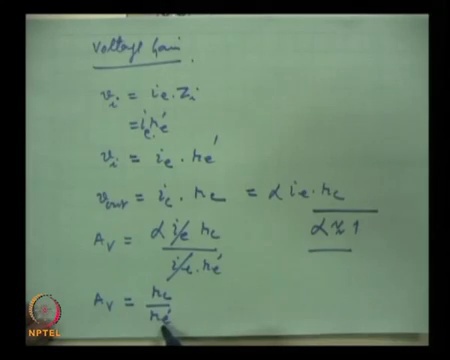 Voltage Gain
v_i = i_e . Z_i
= i_e r_e'
v_i = i_e . r_e'
v_out = i_c . r_c = α i_e . r_c
α ≈ 1
A_V = α i_e r_c / i_e . r_e'
A_V = r_c / r_e'
NPTEL